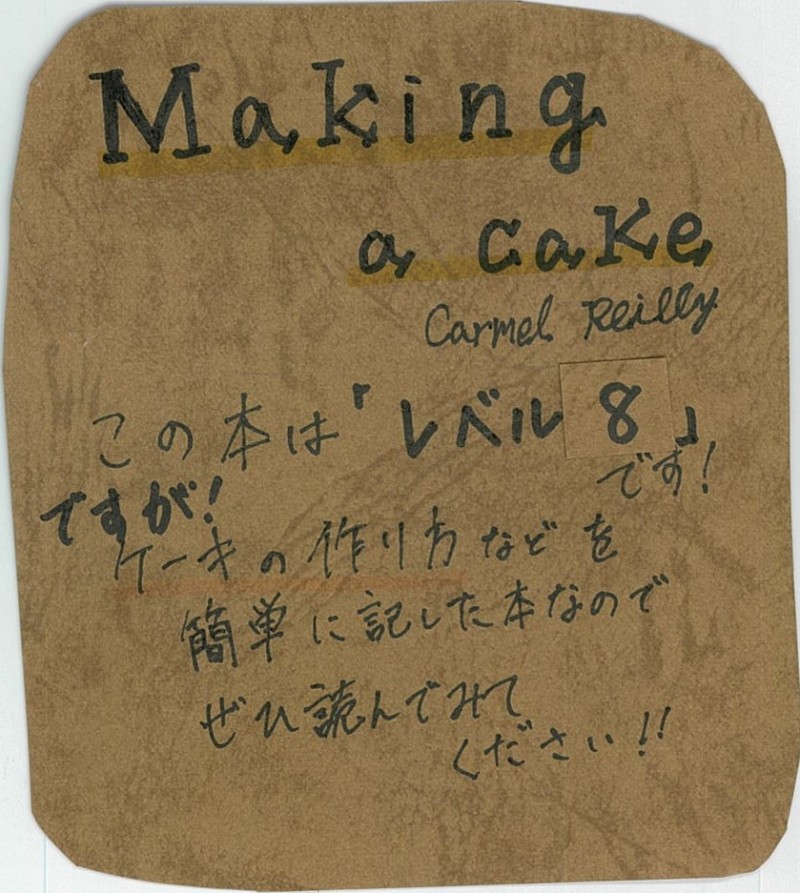 Making
a cake
Carmel Reilly
この本は「レベル8」
です!
ですが!
ケーキの作り方などを
簡単に記した本なので
ぜひ読んでみて
ください!!